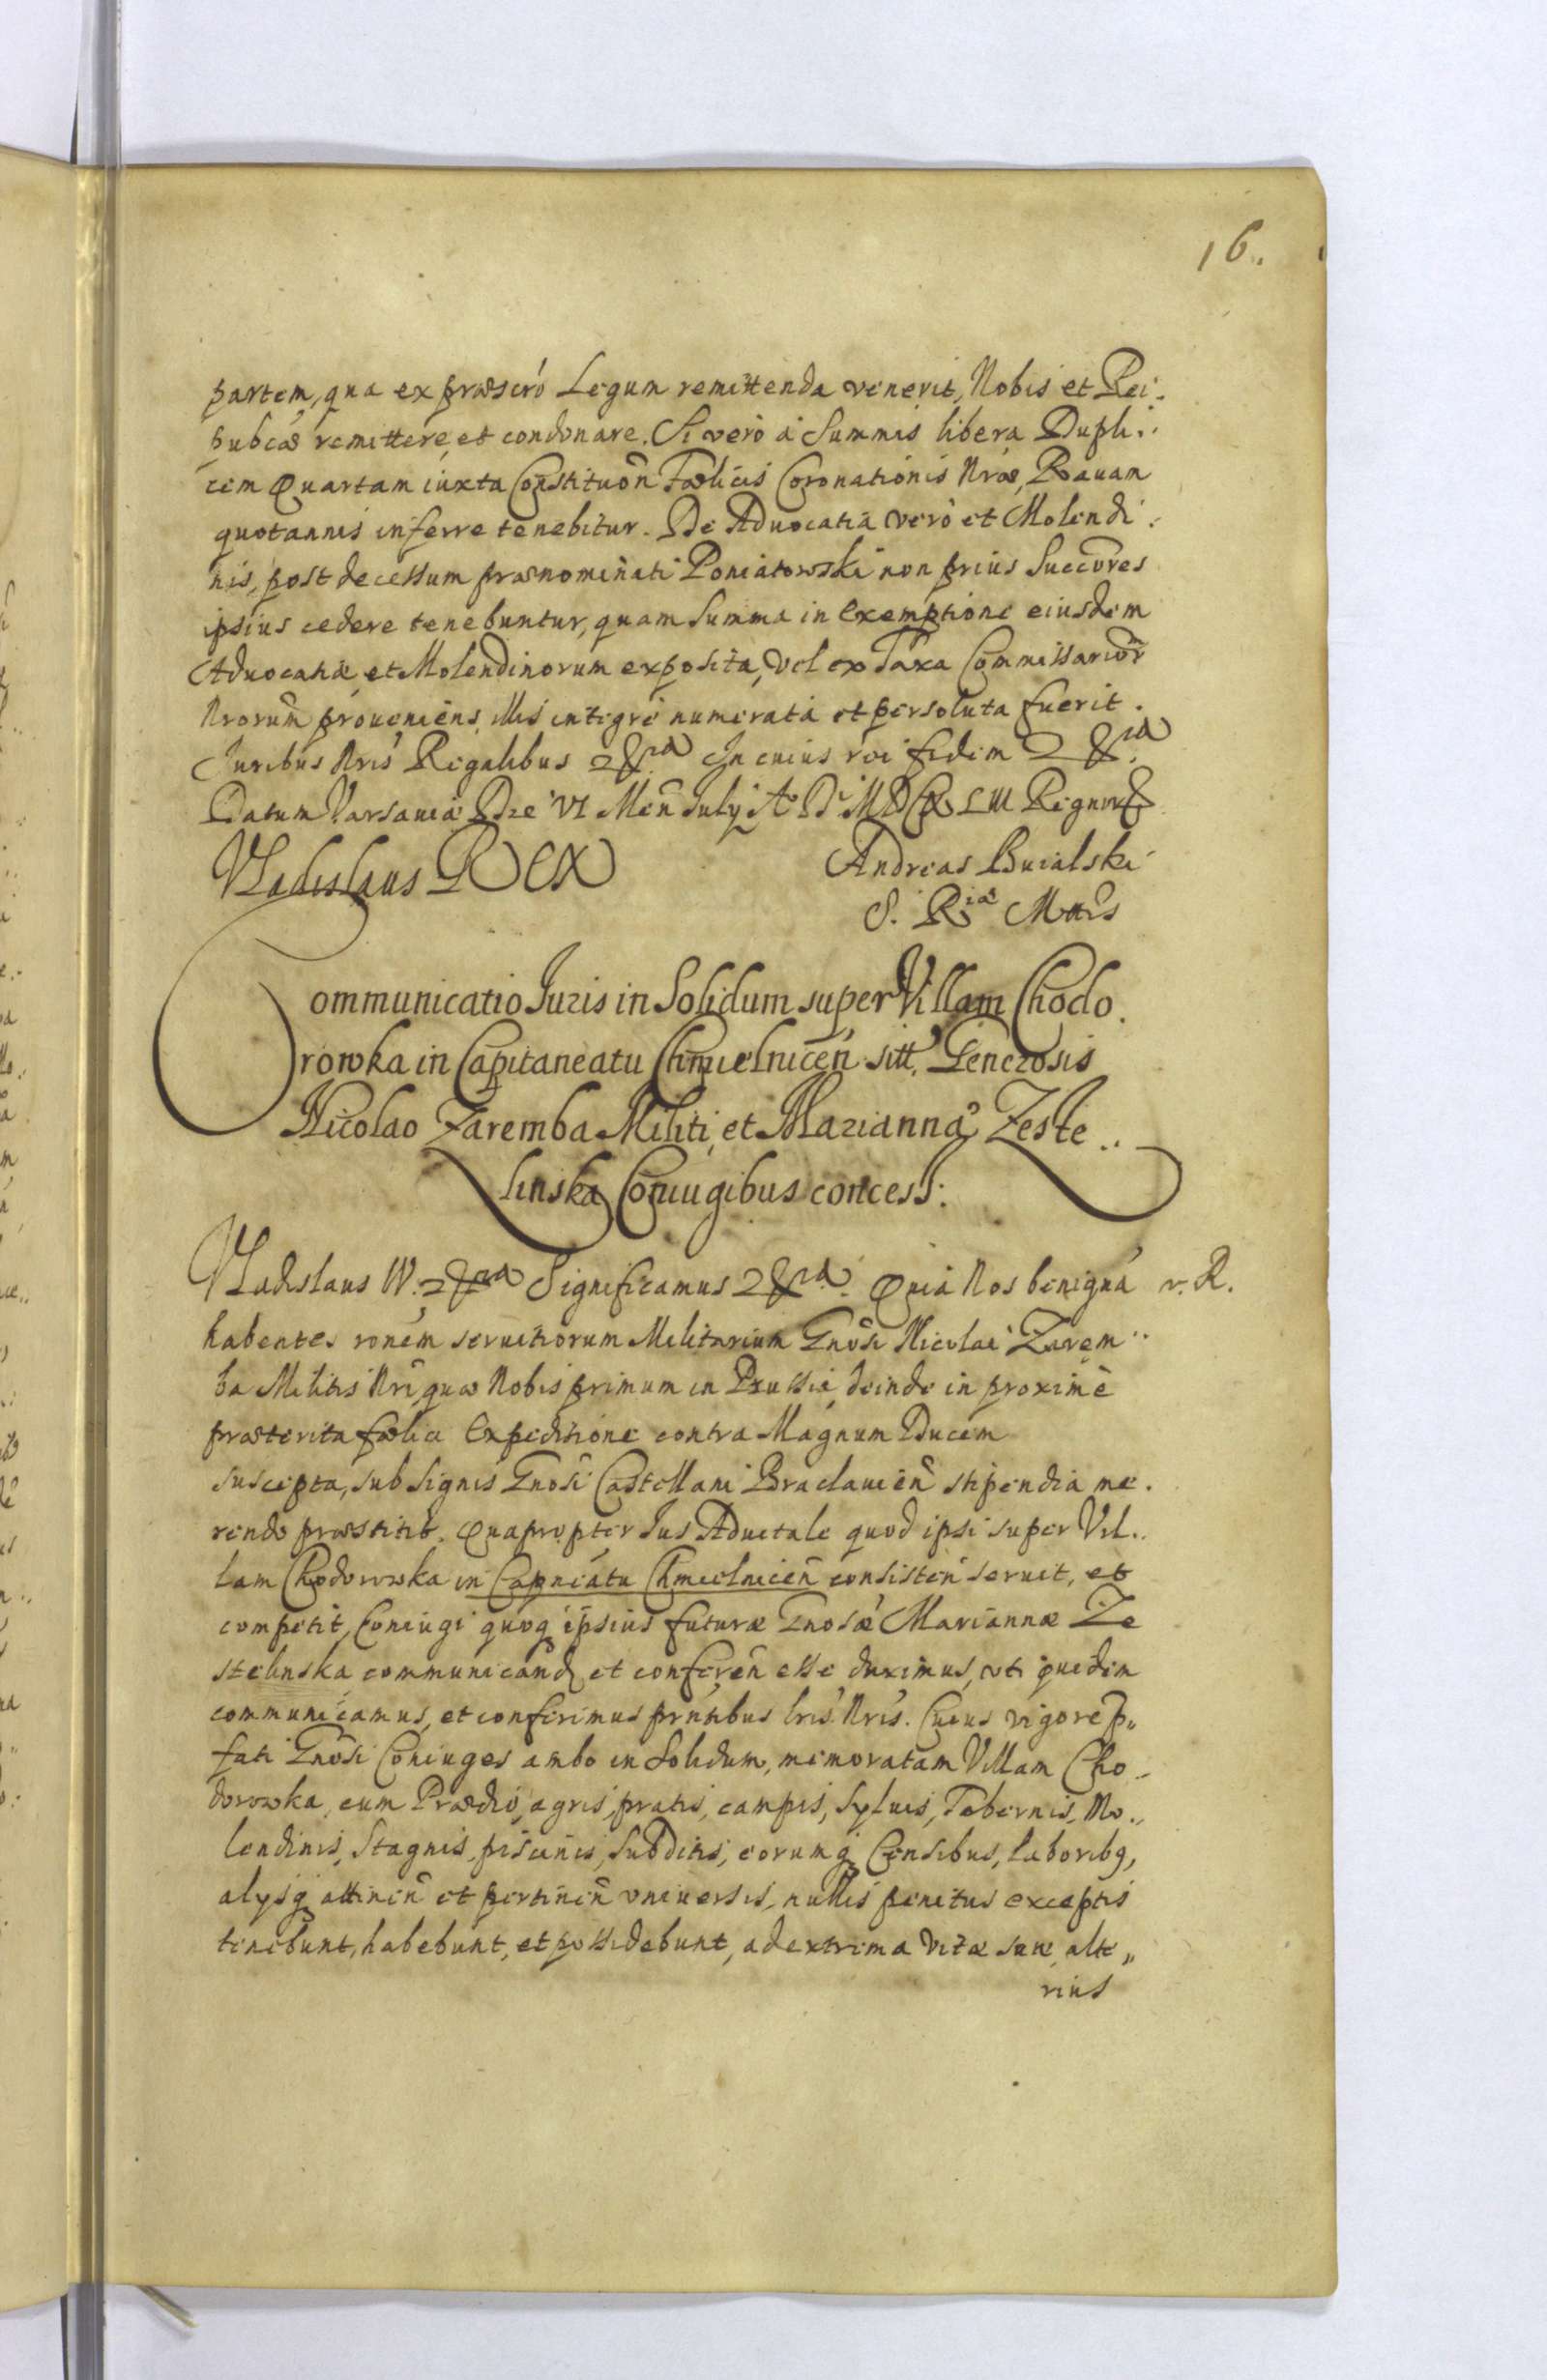 16.
partem, qua ex præscrõ Legum remittenda venerit, Nobis et Rei-
pubcæ remittere, et condonare. Si verò à Summis libera Dupli-
cem Quartam iuxta Constituoñ Fælicis Coronationis Nræ, Rauam
quotannis inferre tenebitur. De Aduocatia verò et Molendi-
nis, post decessum prænominati Poniatowski non prius Succores
ipsius cedere tenebuntur, quam Summa in Exemptione eiusdem
Aduocatiæ et Molendinorum exposita, Vel ex Taxa Commissarior̃
Nrorum proueniens, illis integrè numerata et persoluta fuerit.
Iuribus Nris Regalibus &ra In cuius rei fidem &ra.
Datum Varsauiæ Die VI Meñ July Aº Dⁱ MDCXXXIIII Regnor
Vladislaus REX Andreas Bucialski
S. Riæ Mttis
Communicatio Iuris in Solidum super Villam Chodo-
rowka in Capitaneatu Chmielniceñ sitt. Generosis
Nicolao Zaremba Militi, et Mariannæ Zeste-
linska Coniugibus concess:
Vladislaus IV. &ra Significamus &ra. Quia Nos benignã v. R.
habentes ronem seruitiorum Militarium Gnosi Nicolai Zarem-
ba Militis Nri, quæ Nobis primum in Prussia, deinde in proximè
præterita fælici Expeditione contra Magnum Ducem
suscepta, sub Signis Gnosi Castellani Braclauieñ stipendia me-
rendo præstitit. Quapropter Ius Aduitale quod ipsi super Vil-
lam Chodorowka in Capneatu Chmielniceñ consisteñ seruit, et
competit, Coniugi quoq ipsius futuræ Gnosæ Mariannæ Ze
stelinska communicand et confereñ esse duximus, uti quidem
communicamus, et conferimus prntibus lris Nris. Cuius vigore p-
fati Gnosi Coniuges ambo in Solidum, memoratam Villam Cho-
dorowka, cum Prædio, agris, pratis, campis, Syluis, Tabernis, Mo-
lendinis, Stagnis, piscinis, Subditis, eorumq Censibus, laboribq,
alysq attineñ et pertineñ vniuersis, nullis penitus exceptis
tenebunt, habebunt, et possidebunt, ad extrema Vitæ suæ, alte-
rius